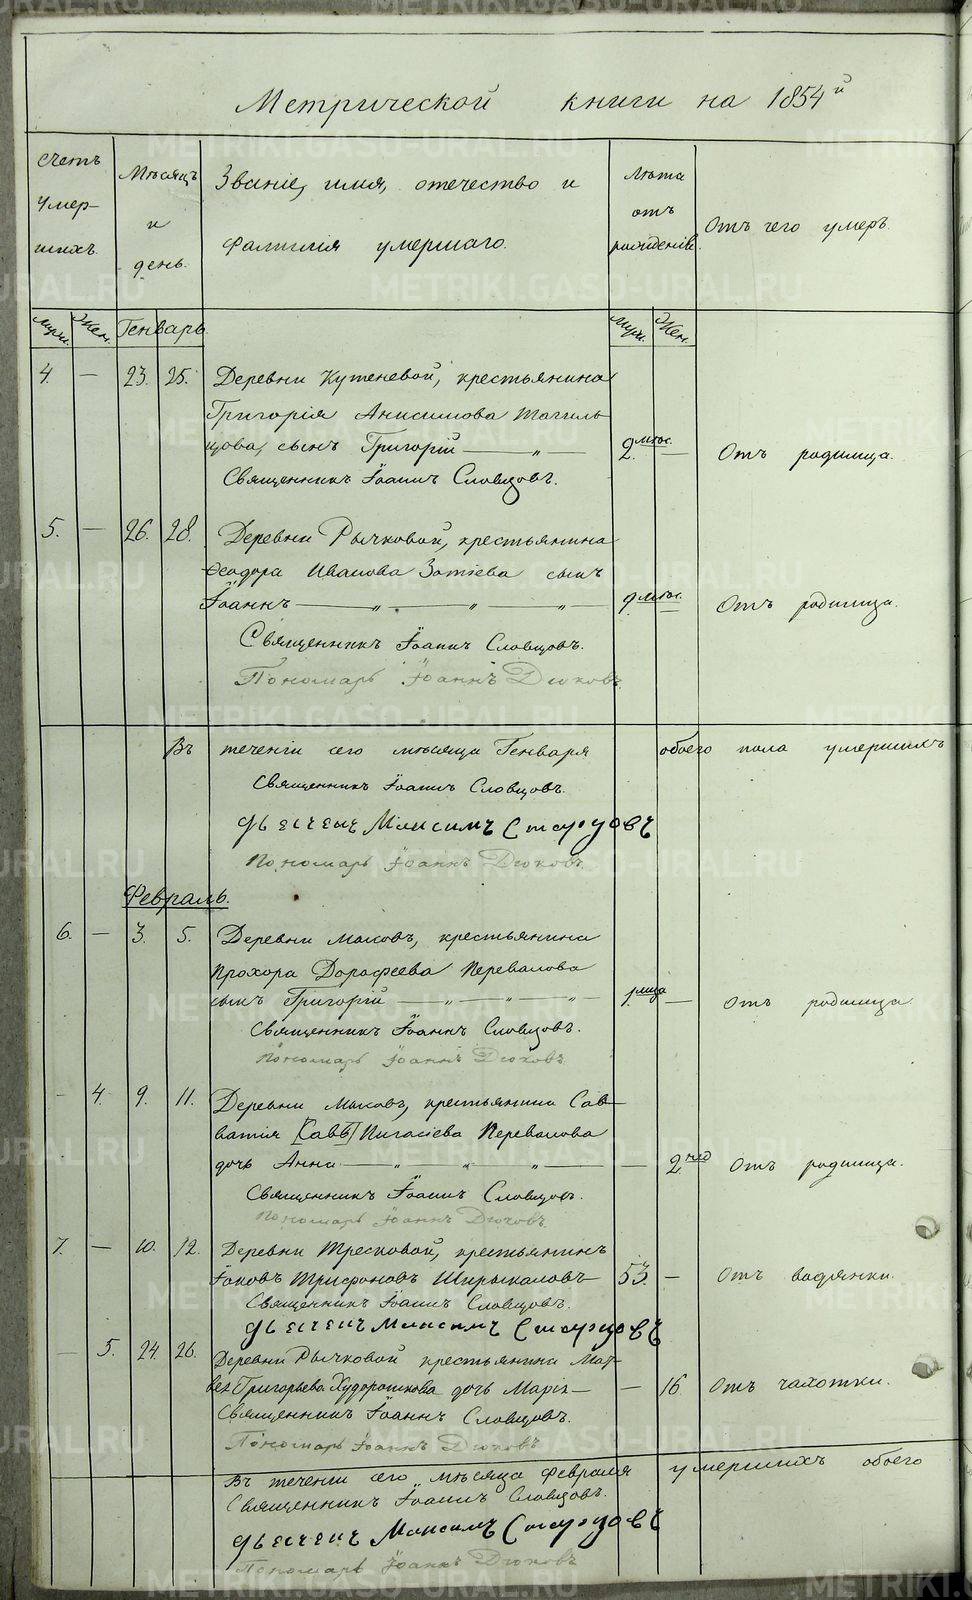 Метрической книги на 1854й
Счетъ умер- шихъ.
Мѣсяцъ и день.
Званіе, имя, отечество и фамилія умершаго.
Лѣта отъ рожденія.
Отъ чего умеръ.
Муж. Жен. Генварь. Муж. Жен.
4. — 23. 25. Деревни Кутеневой, крестьянина
Григорія Анисимова Тагиль
цова, сынъ Григорій — „ — 2. мѣс. — Отъ родимца.
Священникъ Іоаннъ Словцовъ.
5. — 26. 28. Деревни Рычковой, крестьянина
Ѳеодора Иванова Зотѣева сынъ
Іоаннъ — „ — „ — „ — 9. мѣс. — Отъ родимца.
Священникъ Іоаннъ Словцовъ.
Пономарь Іоаннъ Дюковъ
Въ теченіи сего мѣсяца Генваря обоего пола умершихъ
Священникъ Іоаннъ Словцовъ.
Максимъ Старцовъ
Пономарь Іоаннъ Дюковъ.
Февраль.
6. — 3. 5. Деревни Маковъ, крестьянина
Прохора Дорофеева Перевалова
сынъ Григорій — „ — „ — „ — — Отъ родимца.
Священникъ Іоаннъ Словцовъ.
Пономарь Іоаннъ Дюковъ.
— 4. 9. 11. Деревни Маковъ, крестьянина Сав-
ватія [Савв] Пигасіева Перевалова
дочь Анна — „ — „ — „ — — 2. нед Отъ родимца.
Священникъ Іоаннъ Словцовъ.
Пономарь Іоаннъ Дюковъ
7. — 10. 12. Деревни Тресковой, крестьянинъ
Іаковъ Трифоновъ Ширыкаловъ — 53. — Отъ водянки.
Священникъ Іоаннъ Словцовъ.
Максимъ Старцовъ
— 5. 24. 26. Деревни Рычковой крестьянина Мат-
вея Григорьева Худорошкова дочь Марія — — 16 Отъ чахотки.
Священникъ Іоаннъ Словцовъ.
Пономарь Іоаннъ Дюковъ
Въ теченіи сего мѣсяца Февраля умершихъ обоего
Священникъ Іоаннъ Словцовъ.
Максимъ Старцовъ
Пономарь Іоаннъ Дюковъ
METRIKI.GASO-URAL.RU